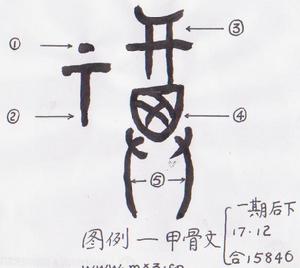 ①
②
③
④
⑤
图例一甲骨文
一期后下
17·12
合15846